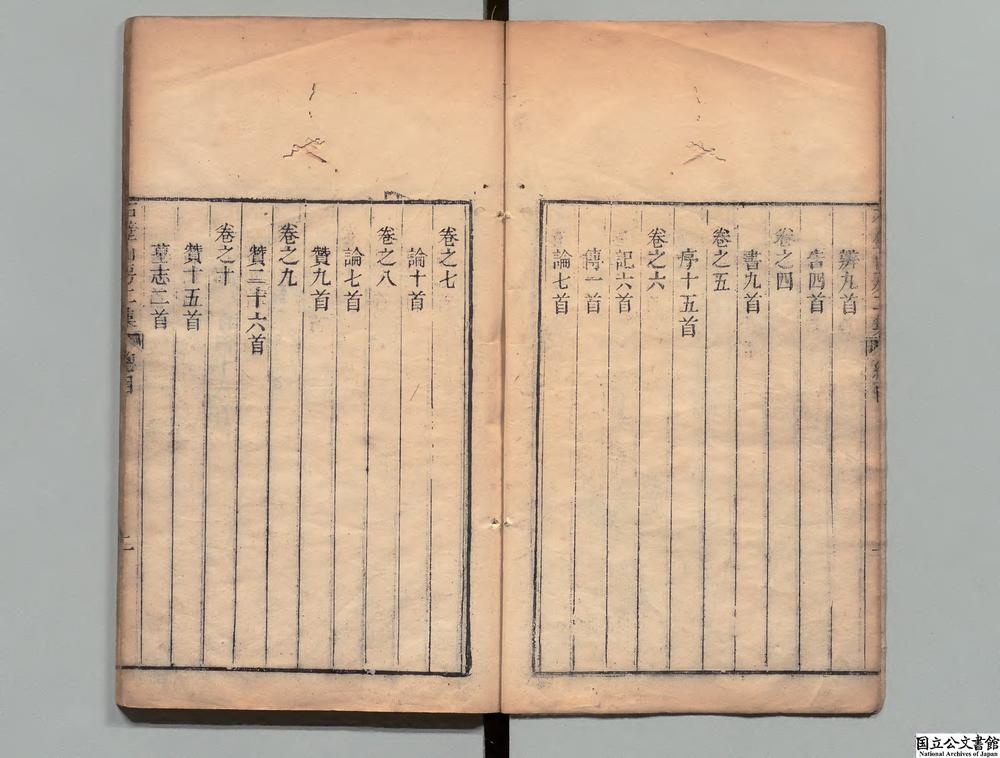 辨九首
書四首
卷之四
書九首
卷之五
序十五首
卷之六
記六首
傳一首
論七首
卷之七
論十首
卷之八
論七首
贊九首
卷之九
贊三十六首
卷之十
贊十五首
墓志二首
国立公文書館
National Archives of Japan